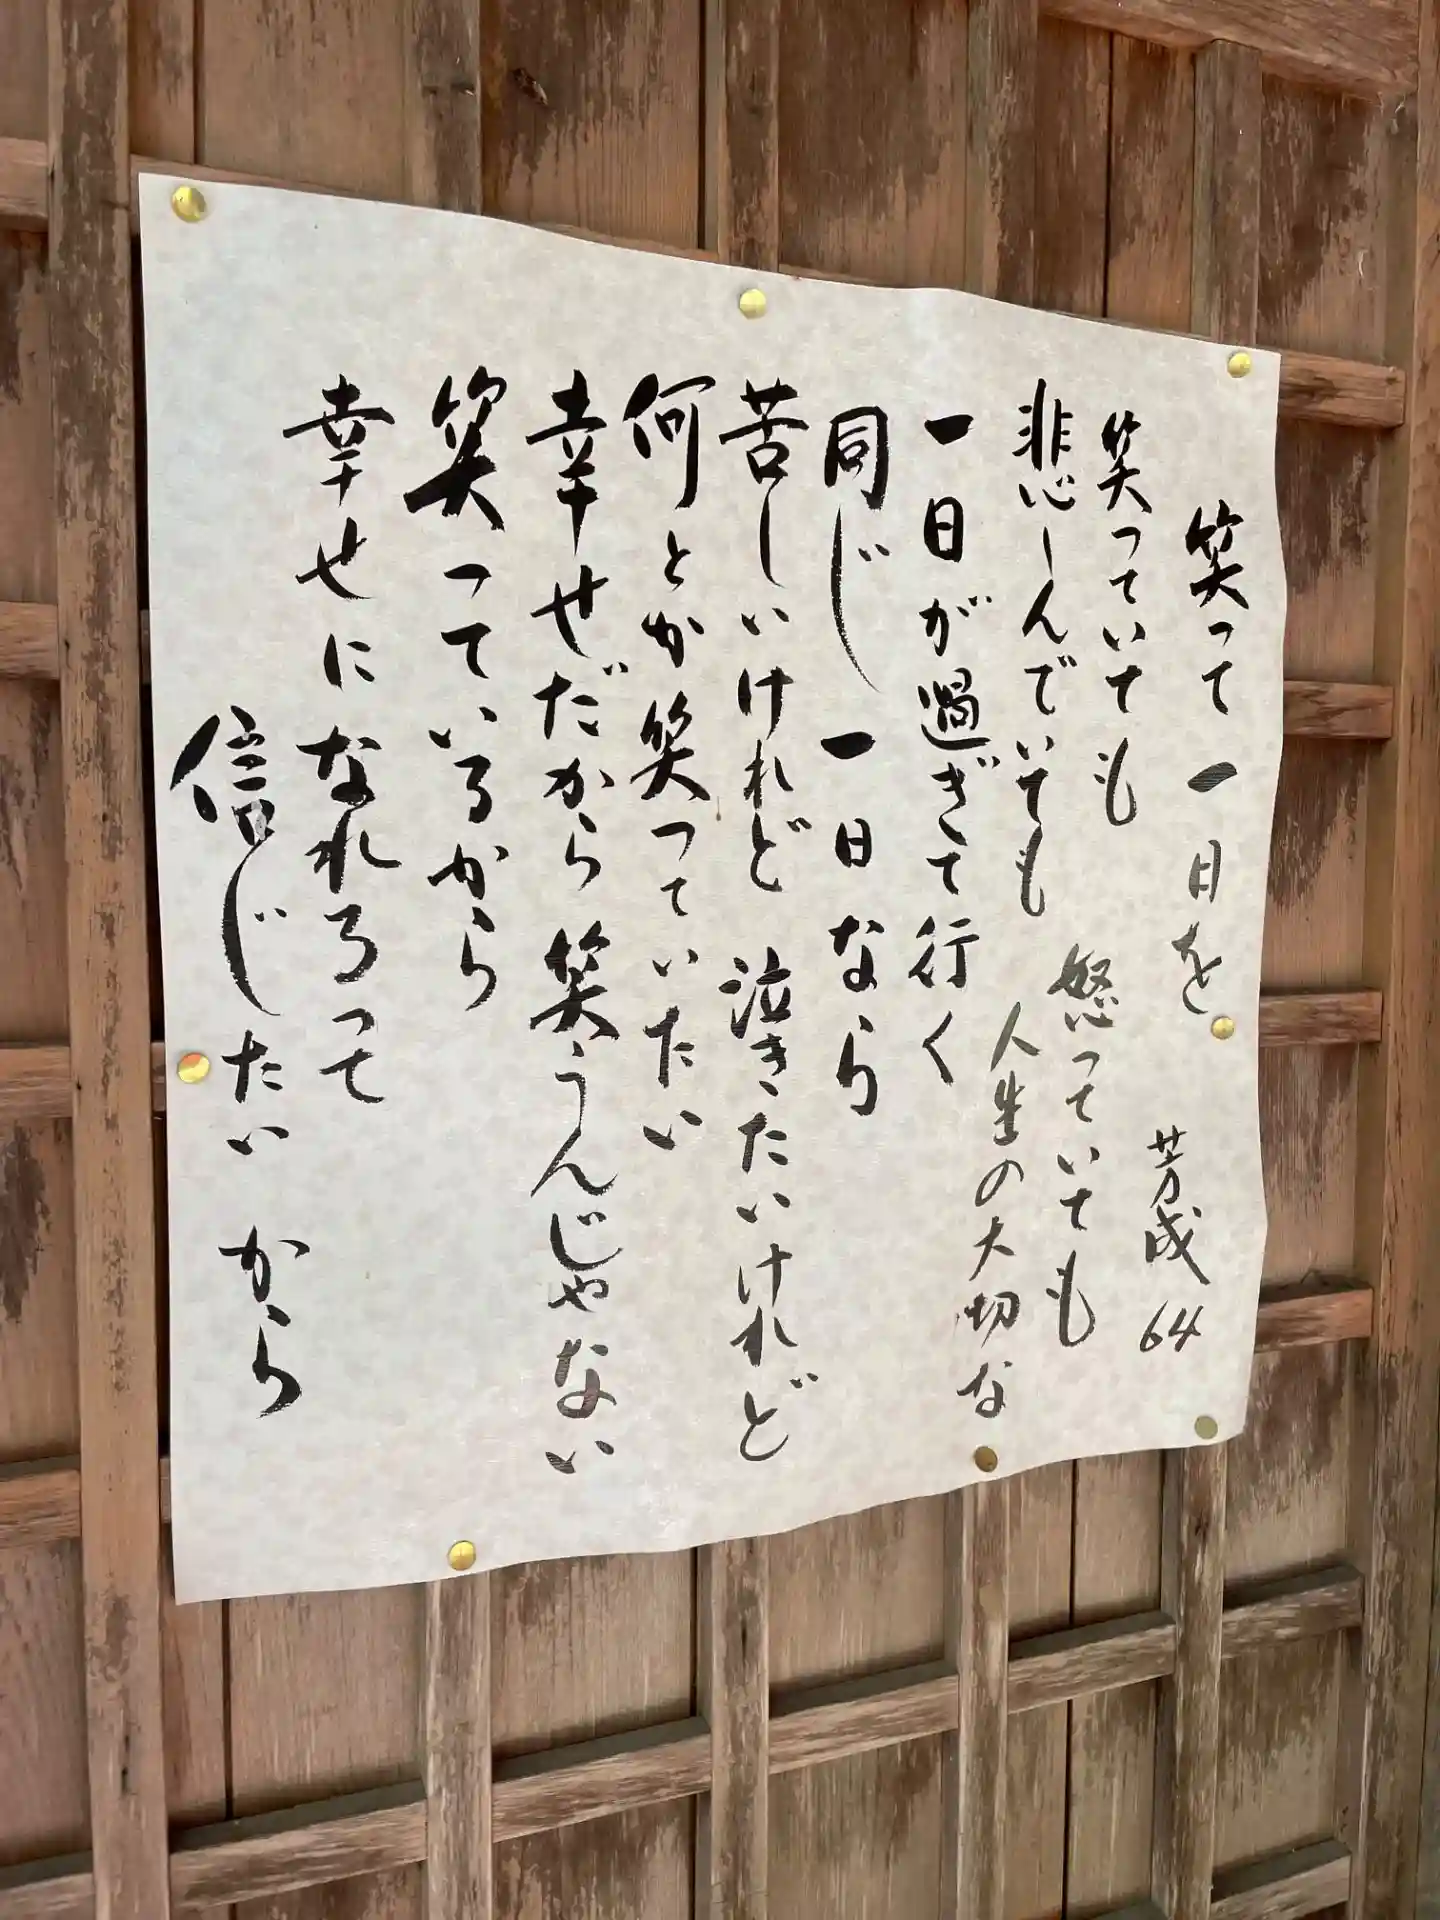 笑って一日を　芳成 64
笑っていても　怒っていても
悲しんでいても　人生の大切な
一日が過ぎて行く
同じ一日なら
苦しいけれど　泣きたいけれど
何とか笑っていたい
幸せだから笑うんじゃない
笑っているから
幸せになれるって
信じたいから